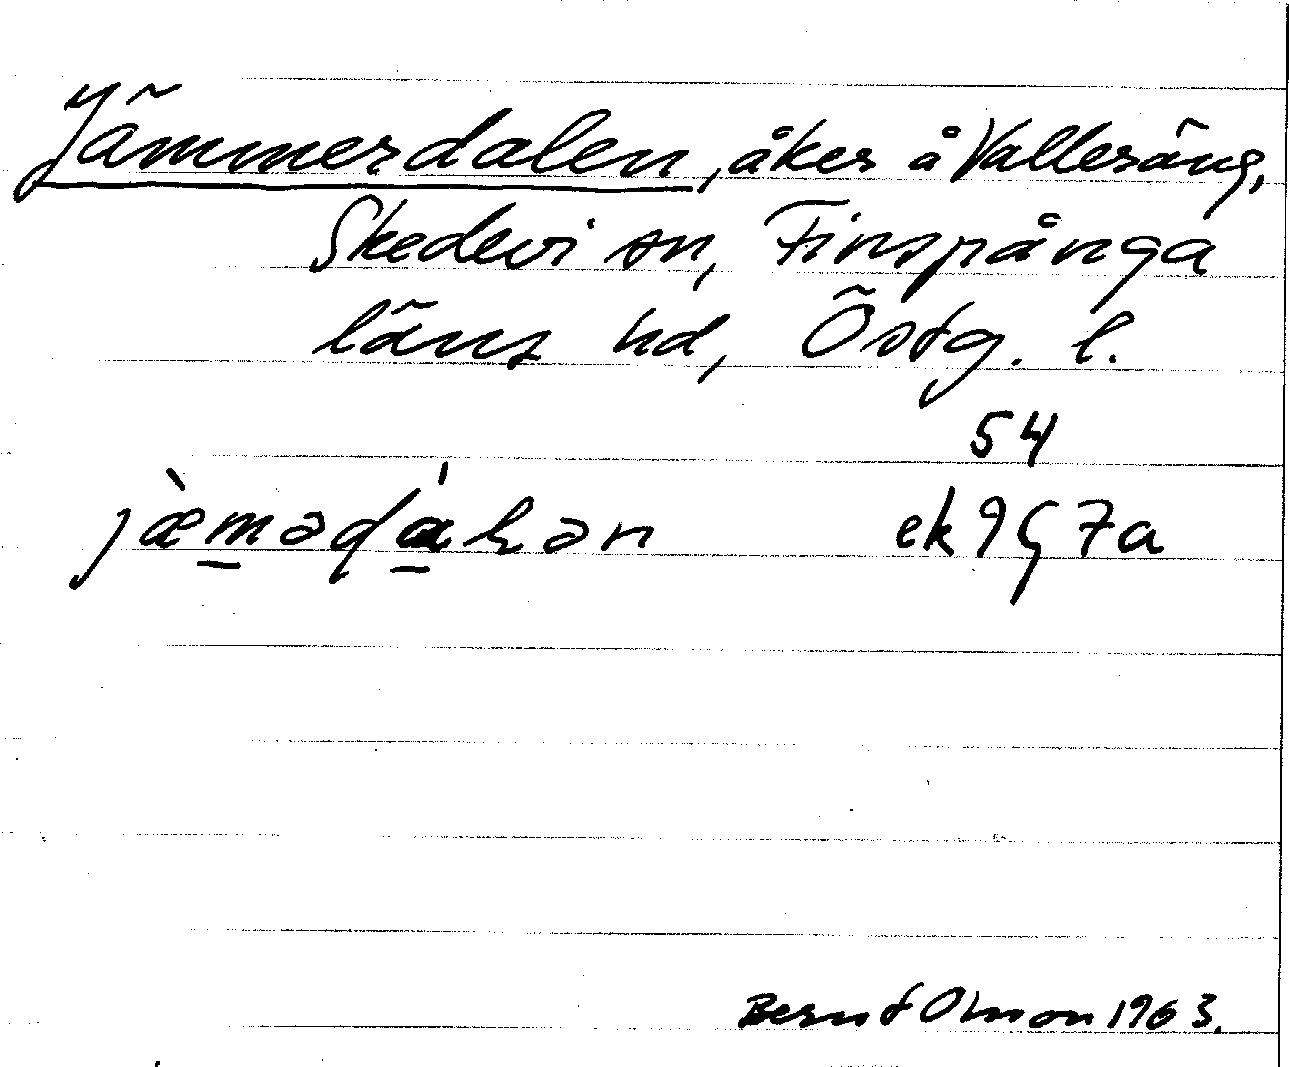 Jämmerdalen, åker å Vallesäng,
Skedevi sn, Finspånga
läns hd, Östg. l.
54
jæ̀mədáɬən ek 9G7a
Bernt Olsson 1963.